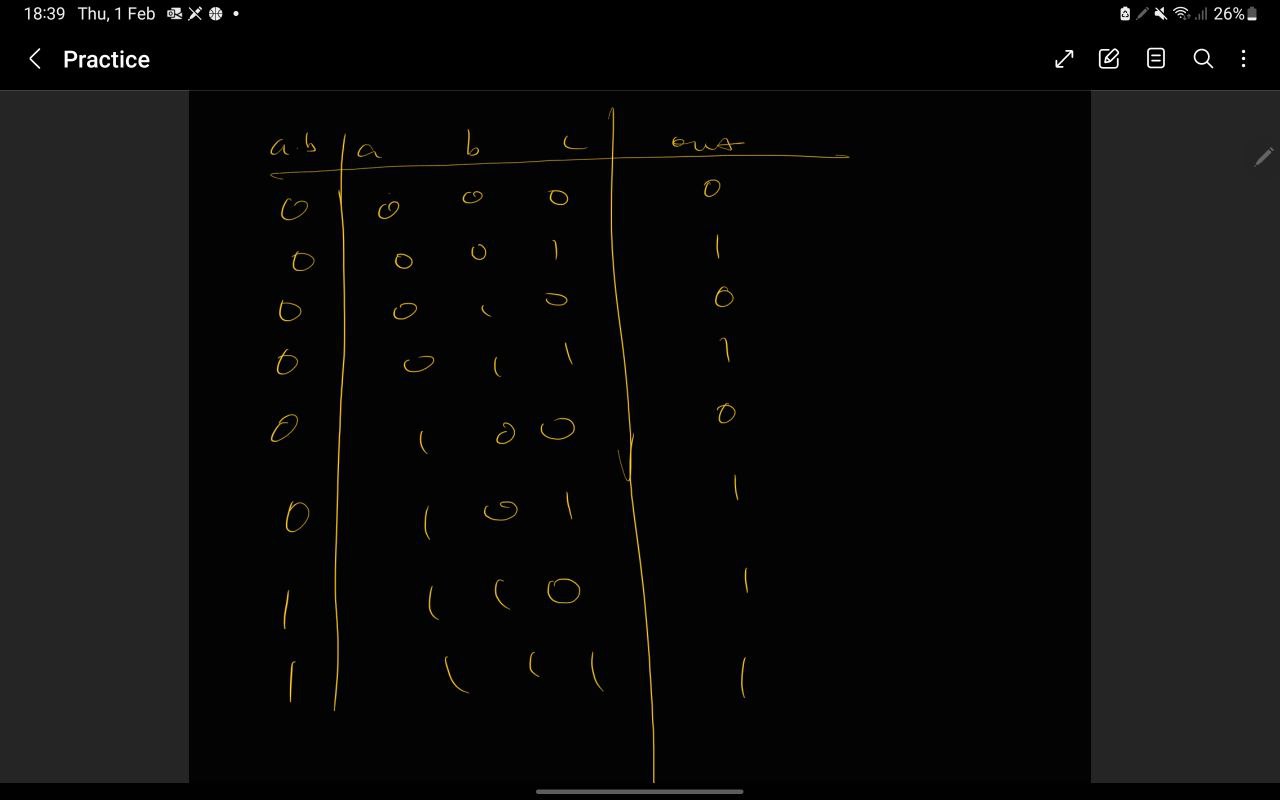 18:39 Thu, 1 Feb 26%
Practice
a.b a b c out
0 0 0 0 0
0 0 0 1 1
0 0 1 0 0
0 0 1 1 1
0 1 0 0 0
0 1 0 1 1
1 1 1 0 1
1 1 1 1 1